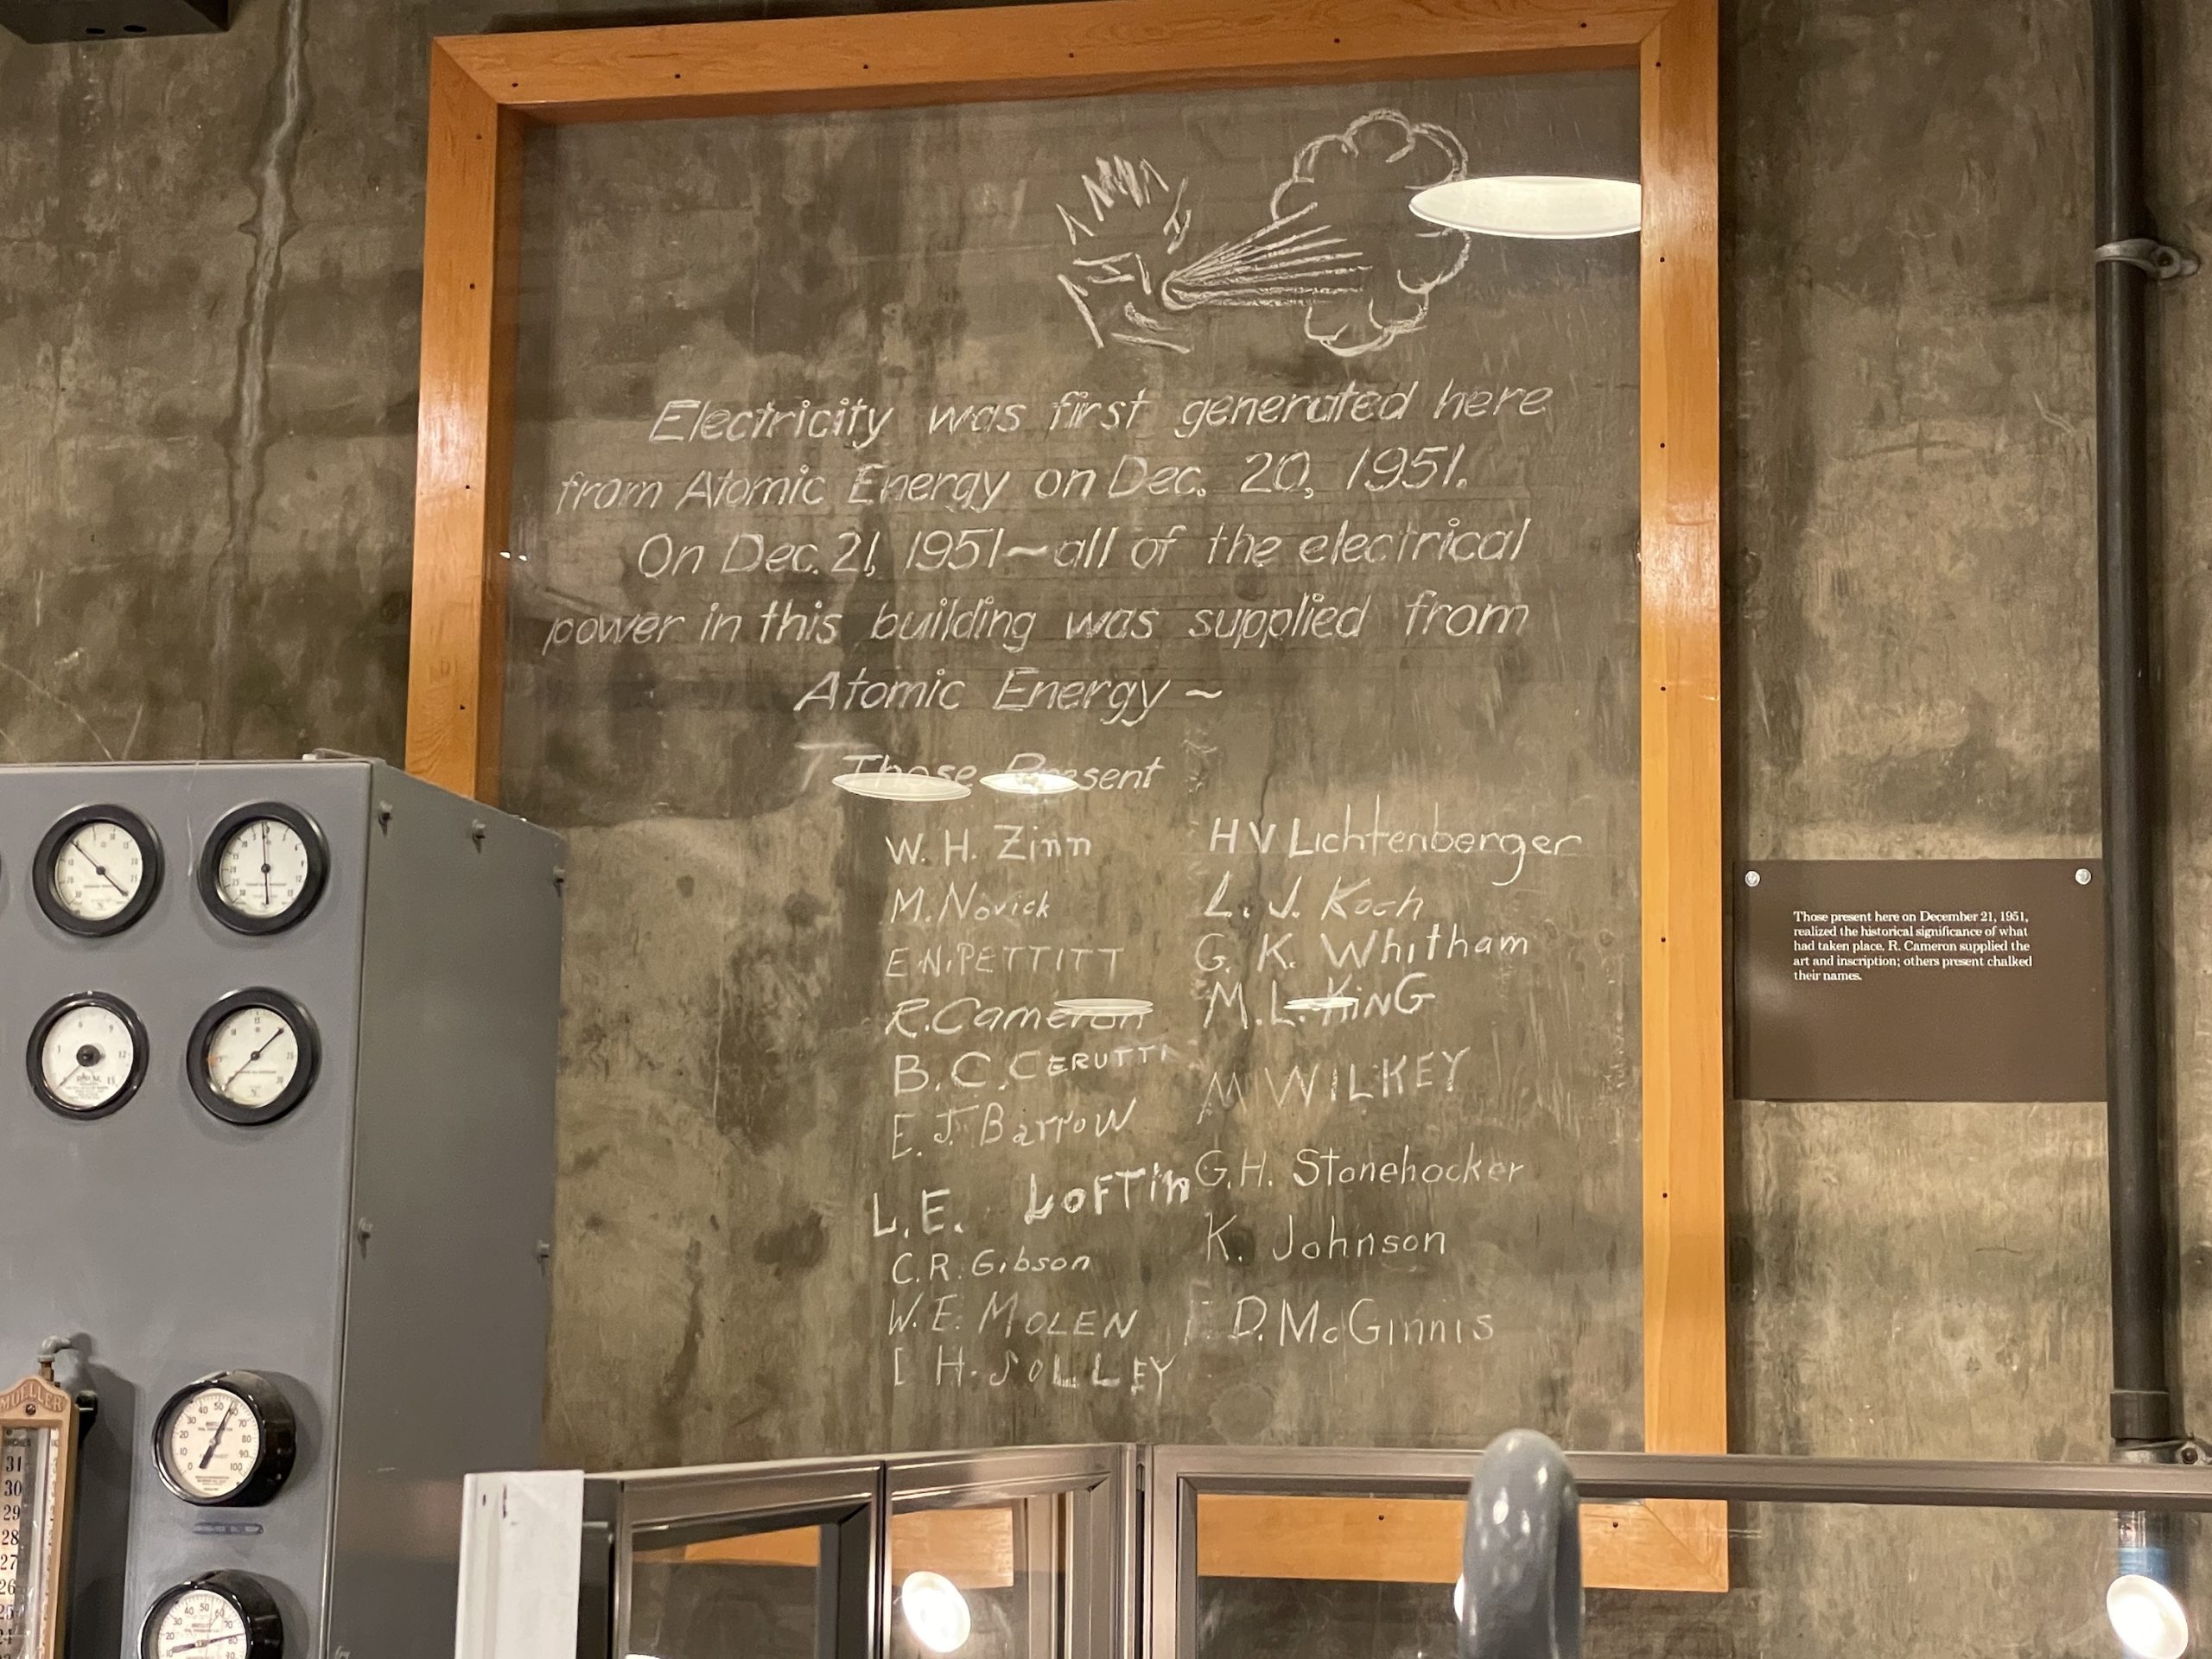 Electricity was first generated here
from Atomic Energy on Dec. 20, 1951.
On Dec. 21, 1951~all of the electrical
power in this building was supplied from
Atomic Energy ~
Those Present
W. H. Zinn
M. Novick
E.N. PETTITT
R. Cameron
B. C. CERUTTI
E. J. Barrow
L. E. LOFTIN
C. R. Gibson
W. E. MOLEN
H. SOLLEY
H V Lichtenberger
L. J. Koch
G. K. Whitham
M. L. KiNG
M WILKEY
G. H. Stonehocker
K. Johnson
D. McGinnis
Those present here on December 21, 1951,
realized the historical significance of what
had taken place. R. Cameron supplied the
art and inscription; others present chalked
their names.
MUELLER
31
30
29
28
27
26